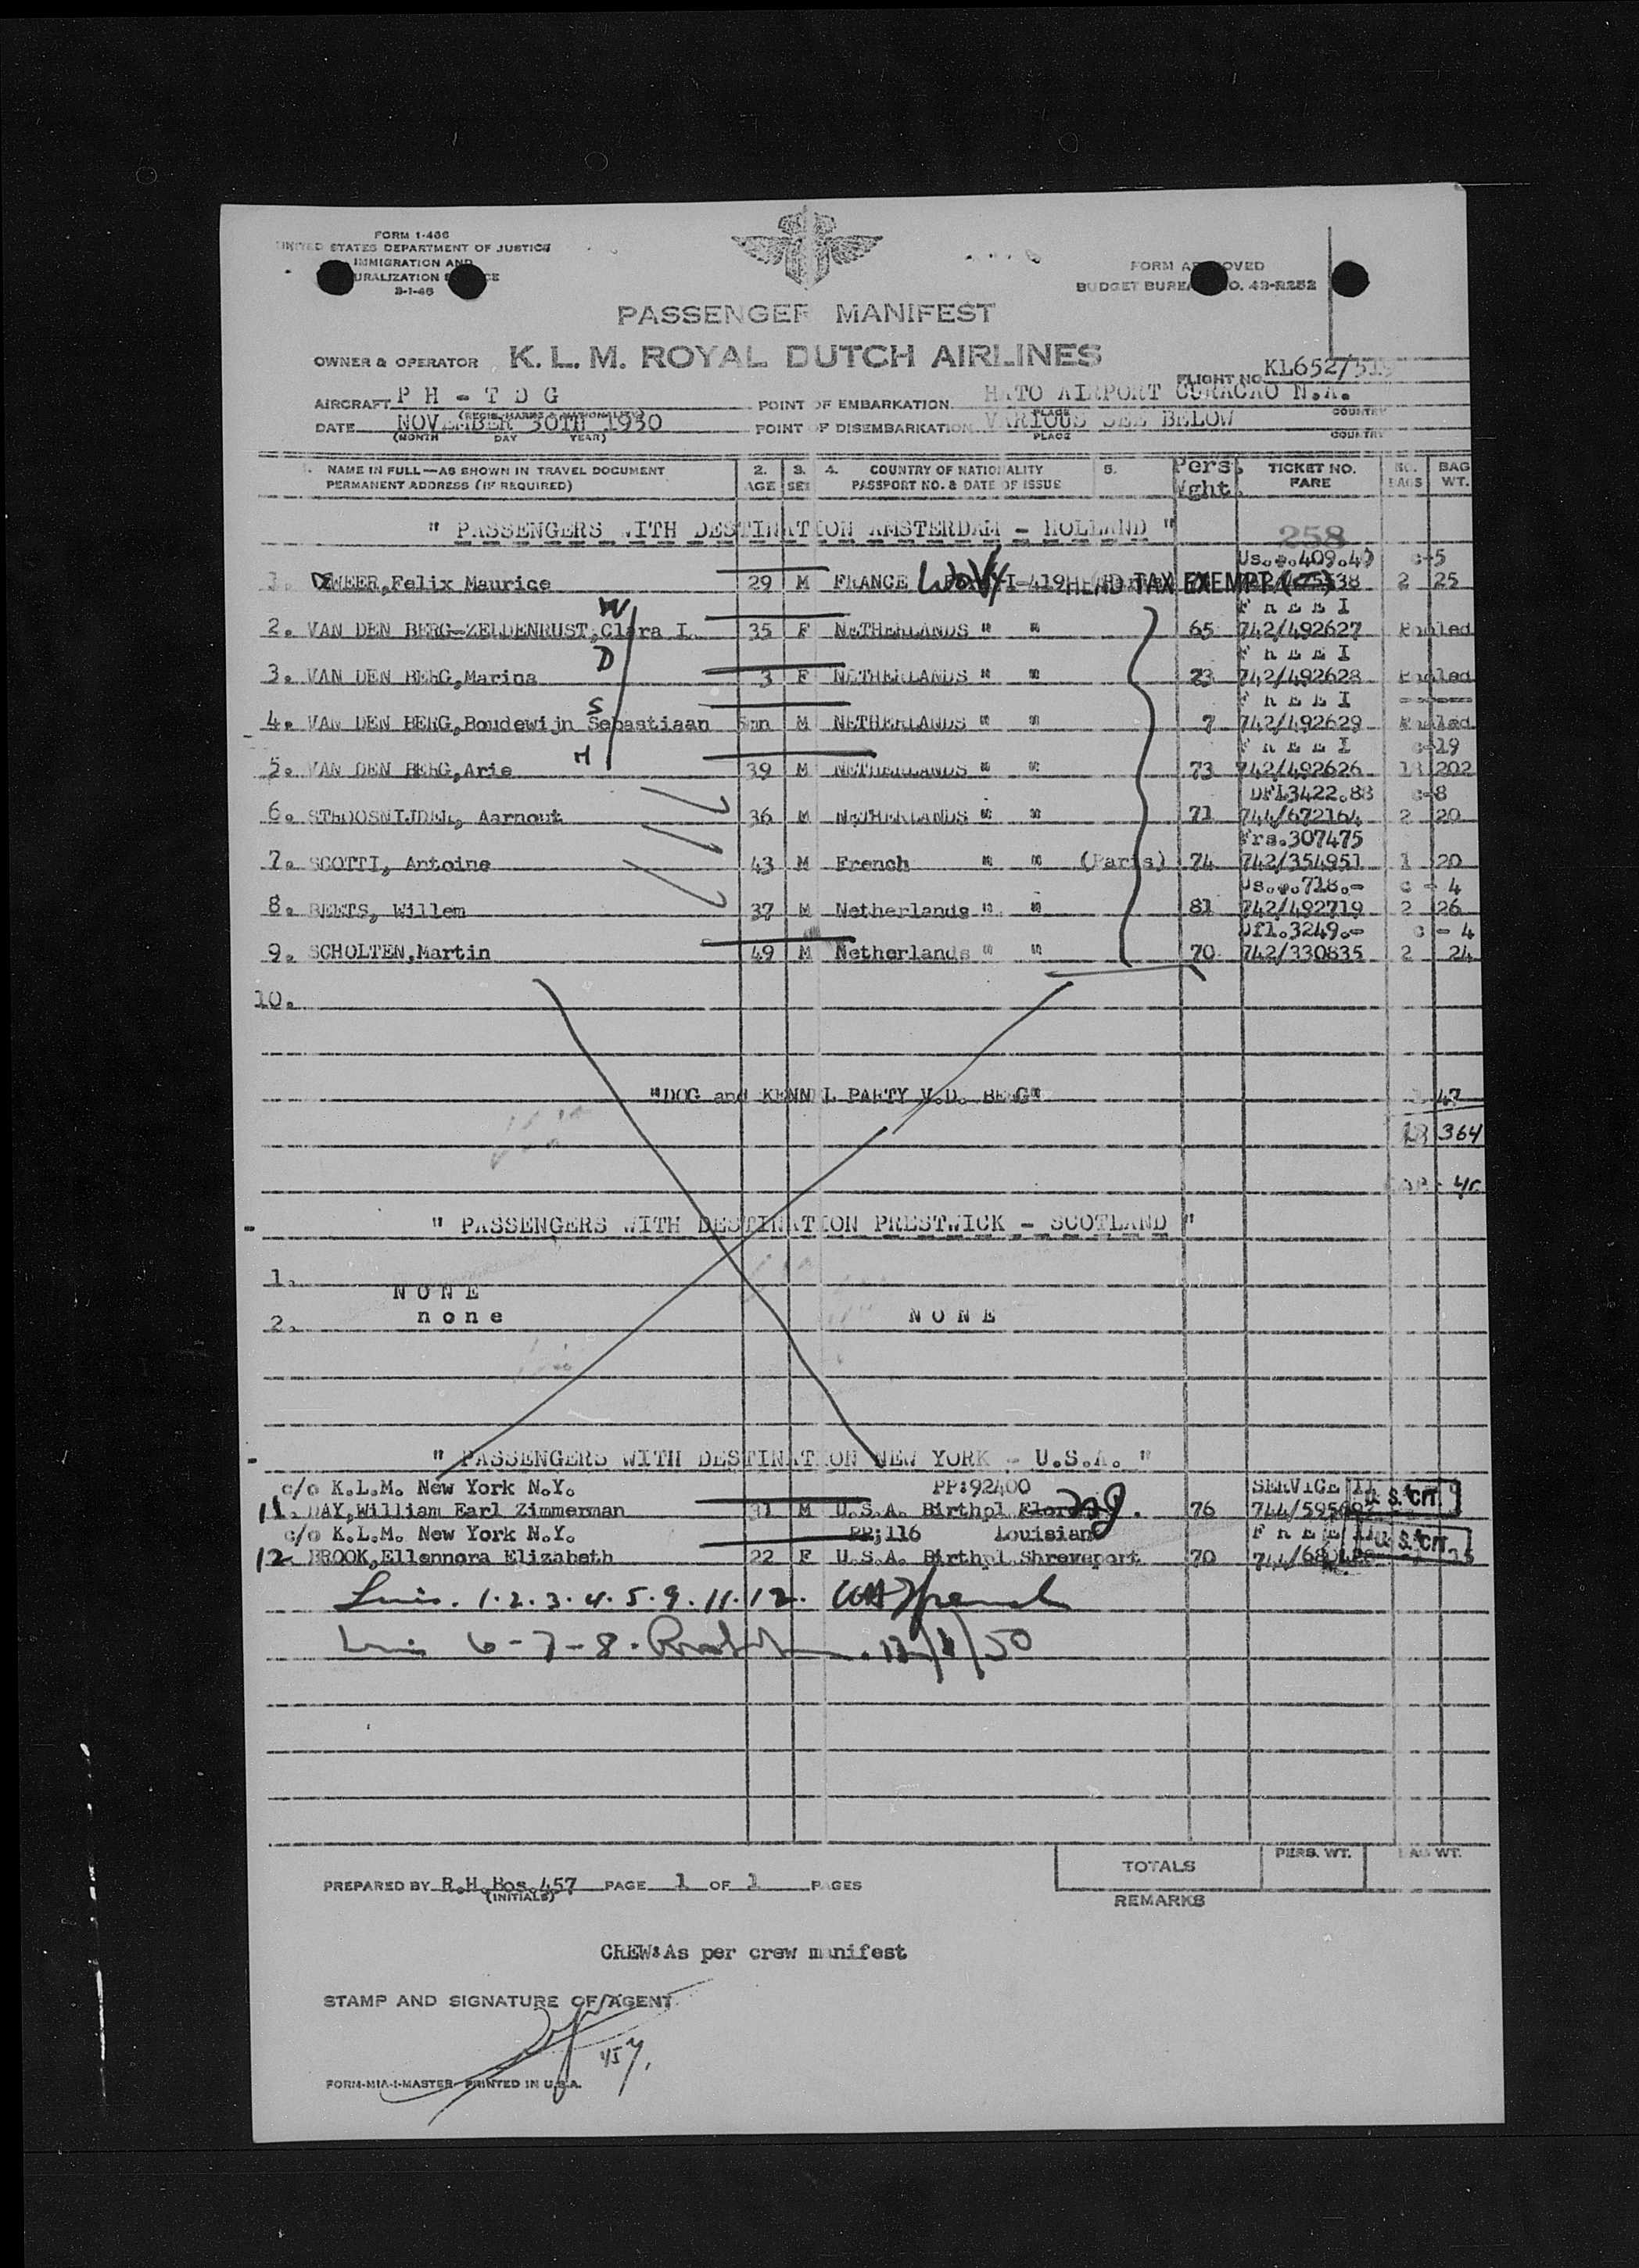 FORM I-466
UNITED STATES DEPARTMENT OF JUSTICE
IMMIGRATION AND
3-1-46
FORM
BUDGET NO. 43-R252
PASSENGER MANIFEST
OWNER & OPERATOR K. L. M. ROYAL DUTCH AIRLINES
FLIGHT NO KL652/
AIRCRAFT P H - T D G POINT OF EMBARKATION HATO AIRPORT CURACAO N.A.
PLACE COUNTRY
DATE NOVEMBER 30TH 1950 POINT OF DISEMBARKATION VARIOUS SEE BELOW
(MONTH DAY YEAR) PLACE COUNTRY
1. NAME IN FULL—AS SHOWN IN TRAVEL DOCUMENT 2. 3. 4. COUNTRY OF NATIONALITY 5. Pers. TICKET NO. NO. BAG
PERMANENT ADDRESS (IF REQUIRED) AGE SEX PASSPORT NO. & DATE OF ISSUE Wght. FARE BAGS WT.
" PASSENGERS WITH DESTINATION AMSTERDAM - HOLLAND " 258
c-5
1. Felix Maurice 29 M FRANCE I-419 HEAD TAX EXEMPT 2 25
W F R E E I
2. VAN DEN BERG-ZELDENRUST, Clara I. 35 F NETHERLANDS " " 65 742/492627 Pooled
D F R E E I
3. VAN DEN BERG, Marina 3 F NETHERLANDS " " 23 742/492628 Pooled
S F R E E I
4. VAN DEN BERG, Boudewijn Sebastiaan M NETHERLANDS " " 7 742/492629 Pooled
H F R E E I c-19
5. VAN DEN BERG, Arie 39 M NETHERLANDS " " 73 742/492626 13 202
DFL3422.88 c-8
6. STROOSNIJDER, Aarnout 36 M NETHERLANDS " " 71 744/672164 2 20
Frs.307475
7. SCOTTI, Antoine 43 M French " " (Paris) 74 742/354951 1 20
718.- c - 4
8. BEETS, Willem 37 M Netherlands " " 81 742/492719 2 26
Dfl.3249.- c - 4
9. SCHOLTEN, Martin 49 M Netherlands " " 70 742/330835 2 24
10.
"DOG and KENNEL PARTY V.D. BERG" 47
364
" PASSENGERS WITH DESTINATION PRESTWICK - SCOTLAND "
1.
N O N E
2. n o n e N O N E
" PASSENGERS WITH DESTINATION NEW YORK - U.S.A. "
c/o K.L.M. New York N.Y. PP:92400 SERVICE II
11. DAY, William Earl Zimmerman 31 M U.S.A. Birthpl 76 U.S. CIT.
c/o K.L.M. New York N.Y. PP;116 Louisiana F R E E
12 BROOK, Ellennora Elizabeth 22 F U.S.A. Birthpl. Shreveport 70 U.S. CIT.
1.2.3.4.5.9.11.12.
6-7-8.
TOTALS PERS. WT. BAG WT.
PREPARED BY R.H.Bos.457 PAGE 1 OF 1 PAGES
(INITIALS)
REMARKS
CREW: As per crew manifest
STAMP AND SIGNATURE OF AGENT
FORM-MIA-1-MASTER PRINTED IN U.S.A.